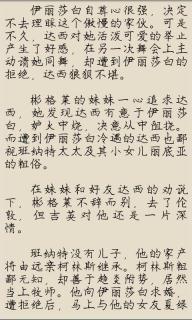 伊丽莎白自尊心很强，决定
不去理睬这个傲慢的家伙。可是
不久，达西对她活泼可爱的举止
产生了好感，在另一次舞会上主
动请她同舞，却遭到伊丽莎白的
拒绝，达西狼狈不堪。
彬格莱的妹妹一心追求达
西，她发现达西有意于伊丽莎
白，妒火中烧，决意从中阻挠。
而遭到伊丽莎白冷遇的达西也鄙
视班纳特太太及其小女儿丽底亚
的粗俗。
在妹妹和好友达西的劝说
下，彬格莱不辞而别，去了伦
敦，但吉英对他还是一片深
情。
班纳特没有儿子，他的家产
将由远亲柯林斯继承。柯林斯粗
鄙无知，却善于趋炎附势，居然
当上牧师。他向伊丽莎白求婚，
遭拒绝后，马上与他的女友夏绿